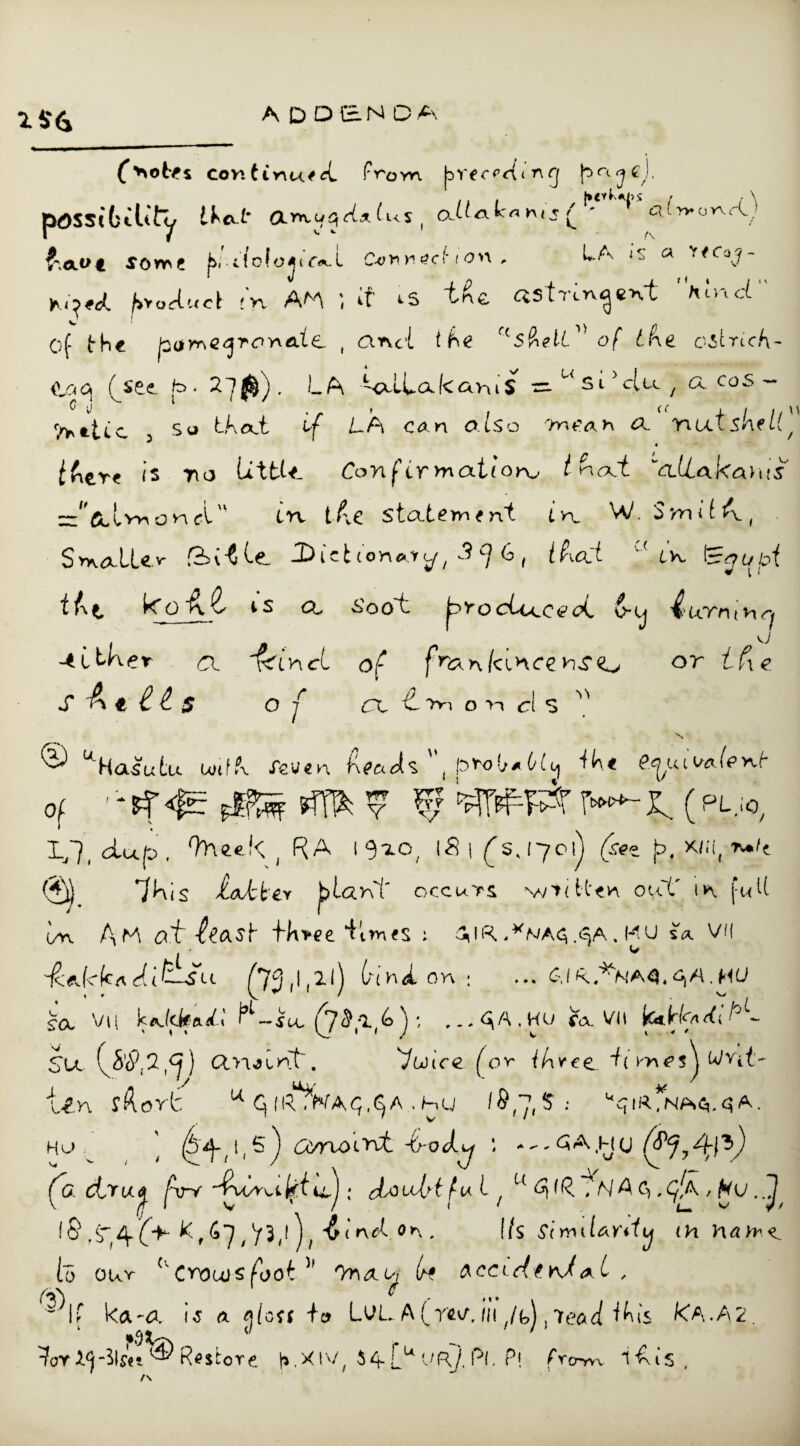 256 ADDENDA
(notes continued from preceding page).
possibility that amygdalus, allakanis ( - perhaps almond)
have some philological connection. LA is a recog-
nized product in AM ; it is the astringent "kind"
of the pomegranate, and the "shell" of the ostrich-
egg (see p. 27). LA allakaniš = "si'du, a cos-
metic, so that if LA can also mean a "nutshell",
there is no little confirmation that allakaniš
= "almond" in the statement in W. Smith,
Smaller Bible Dictionary, 396, that "in Egypt
the kohl is a soot produced by burning
either a kind of frankincense or the
shells of almonds"
② "Hašutu with seven heads", probably the equivalent
of (PL.10,
I,7, dup. Meek, RA 1920, 181 (S.1701) (see p. XIII, note
④). This latter plant occurs written out in full
in AM at least three times : GIR.NAG.GA.HU ša VII
kakkadi PL-šu (73,1,21) bind on : ... GIR.NAG.GA.HU
ša VII kakkadi PL-šu (78,2,6) ; ...GA.HU ša VII kakkadi PL-
šu (88,2,9) anoint. Twice (or three times) writ-
ten short "GIR.NAG.GA.HU 18,7,5 ; "GIR.NAG.GA.
HU (64,1,5) anoint body ; ...GA.HU
(a drug for ; doubtful, "GIR.NAG.GA.HU..],
18,5,4 (+ K, 67,73,1), bind on. Its similarity in name
to our "Crowsfoot" may be accidental.
③ If ka-a is a gloss to LUL.A (rev. iii, 16), read this KA.A2.
For 29-31 see Restore p. XIV, 54 ["UR]. PI. PI from this.